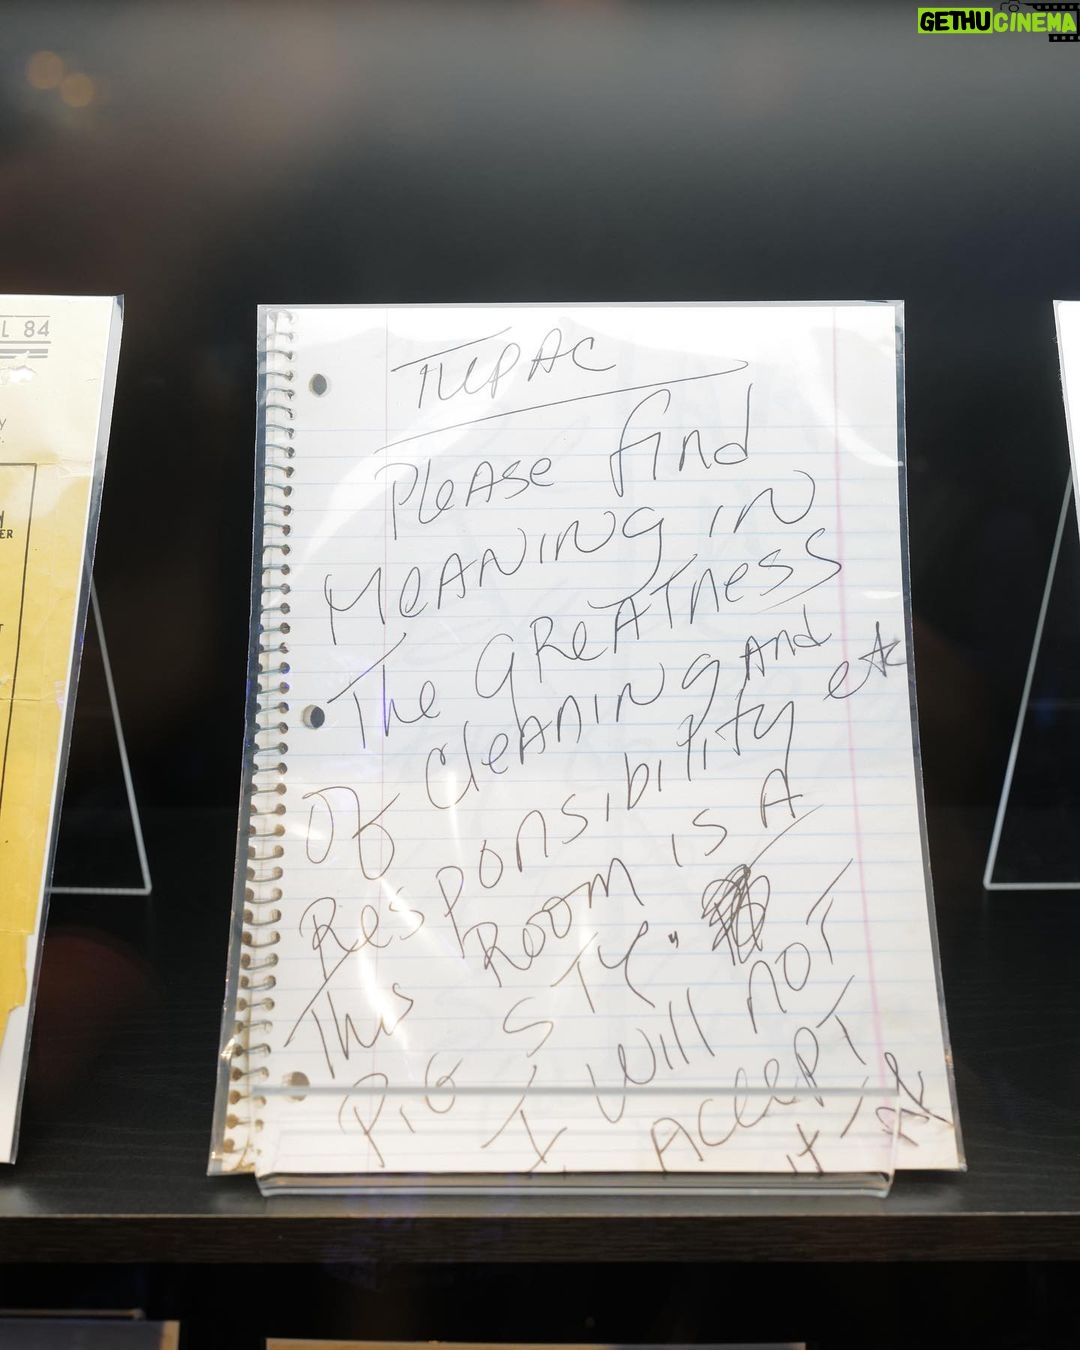 GETHUCINEMA
L 84
ER
TUPAC
Please find
Meaning in
The GReATness
Of cleaning and
Responsibility etc
This Room is A
Pig STY."
I will not
Accept
it